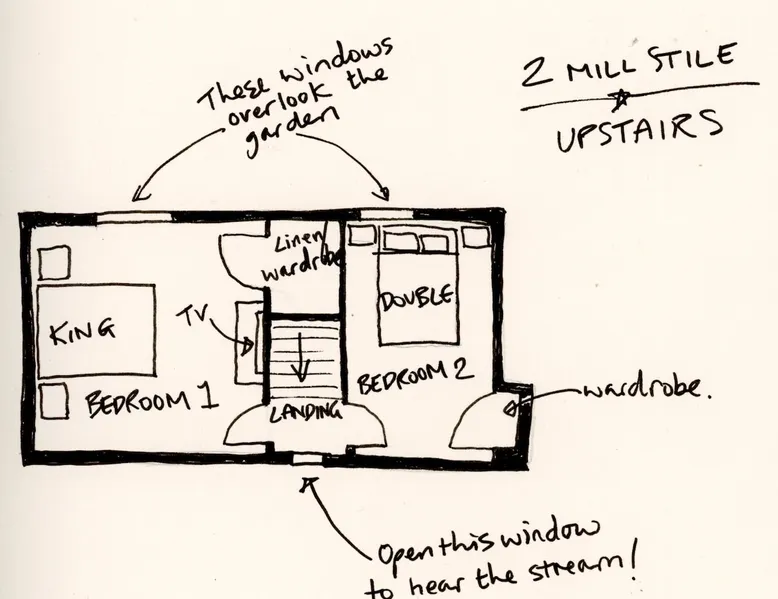 2 MILL STILE
UPSTAIRS
These windows
overlook the
garden
Linen
wardrobe
TV
KING
DOUBLE
BEDROOM 1
LANDING
BEDROOM 2
wardrobe.
Open this window
to hear the stream!